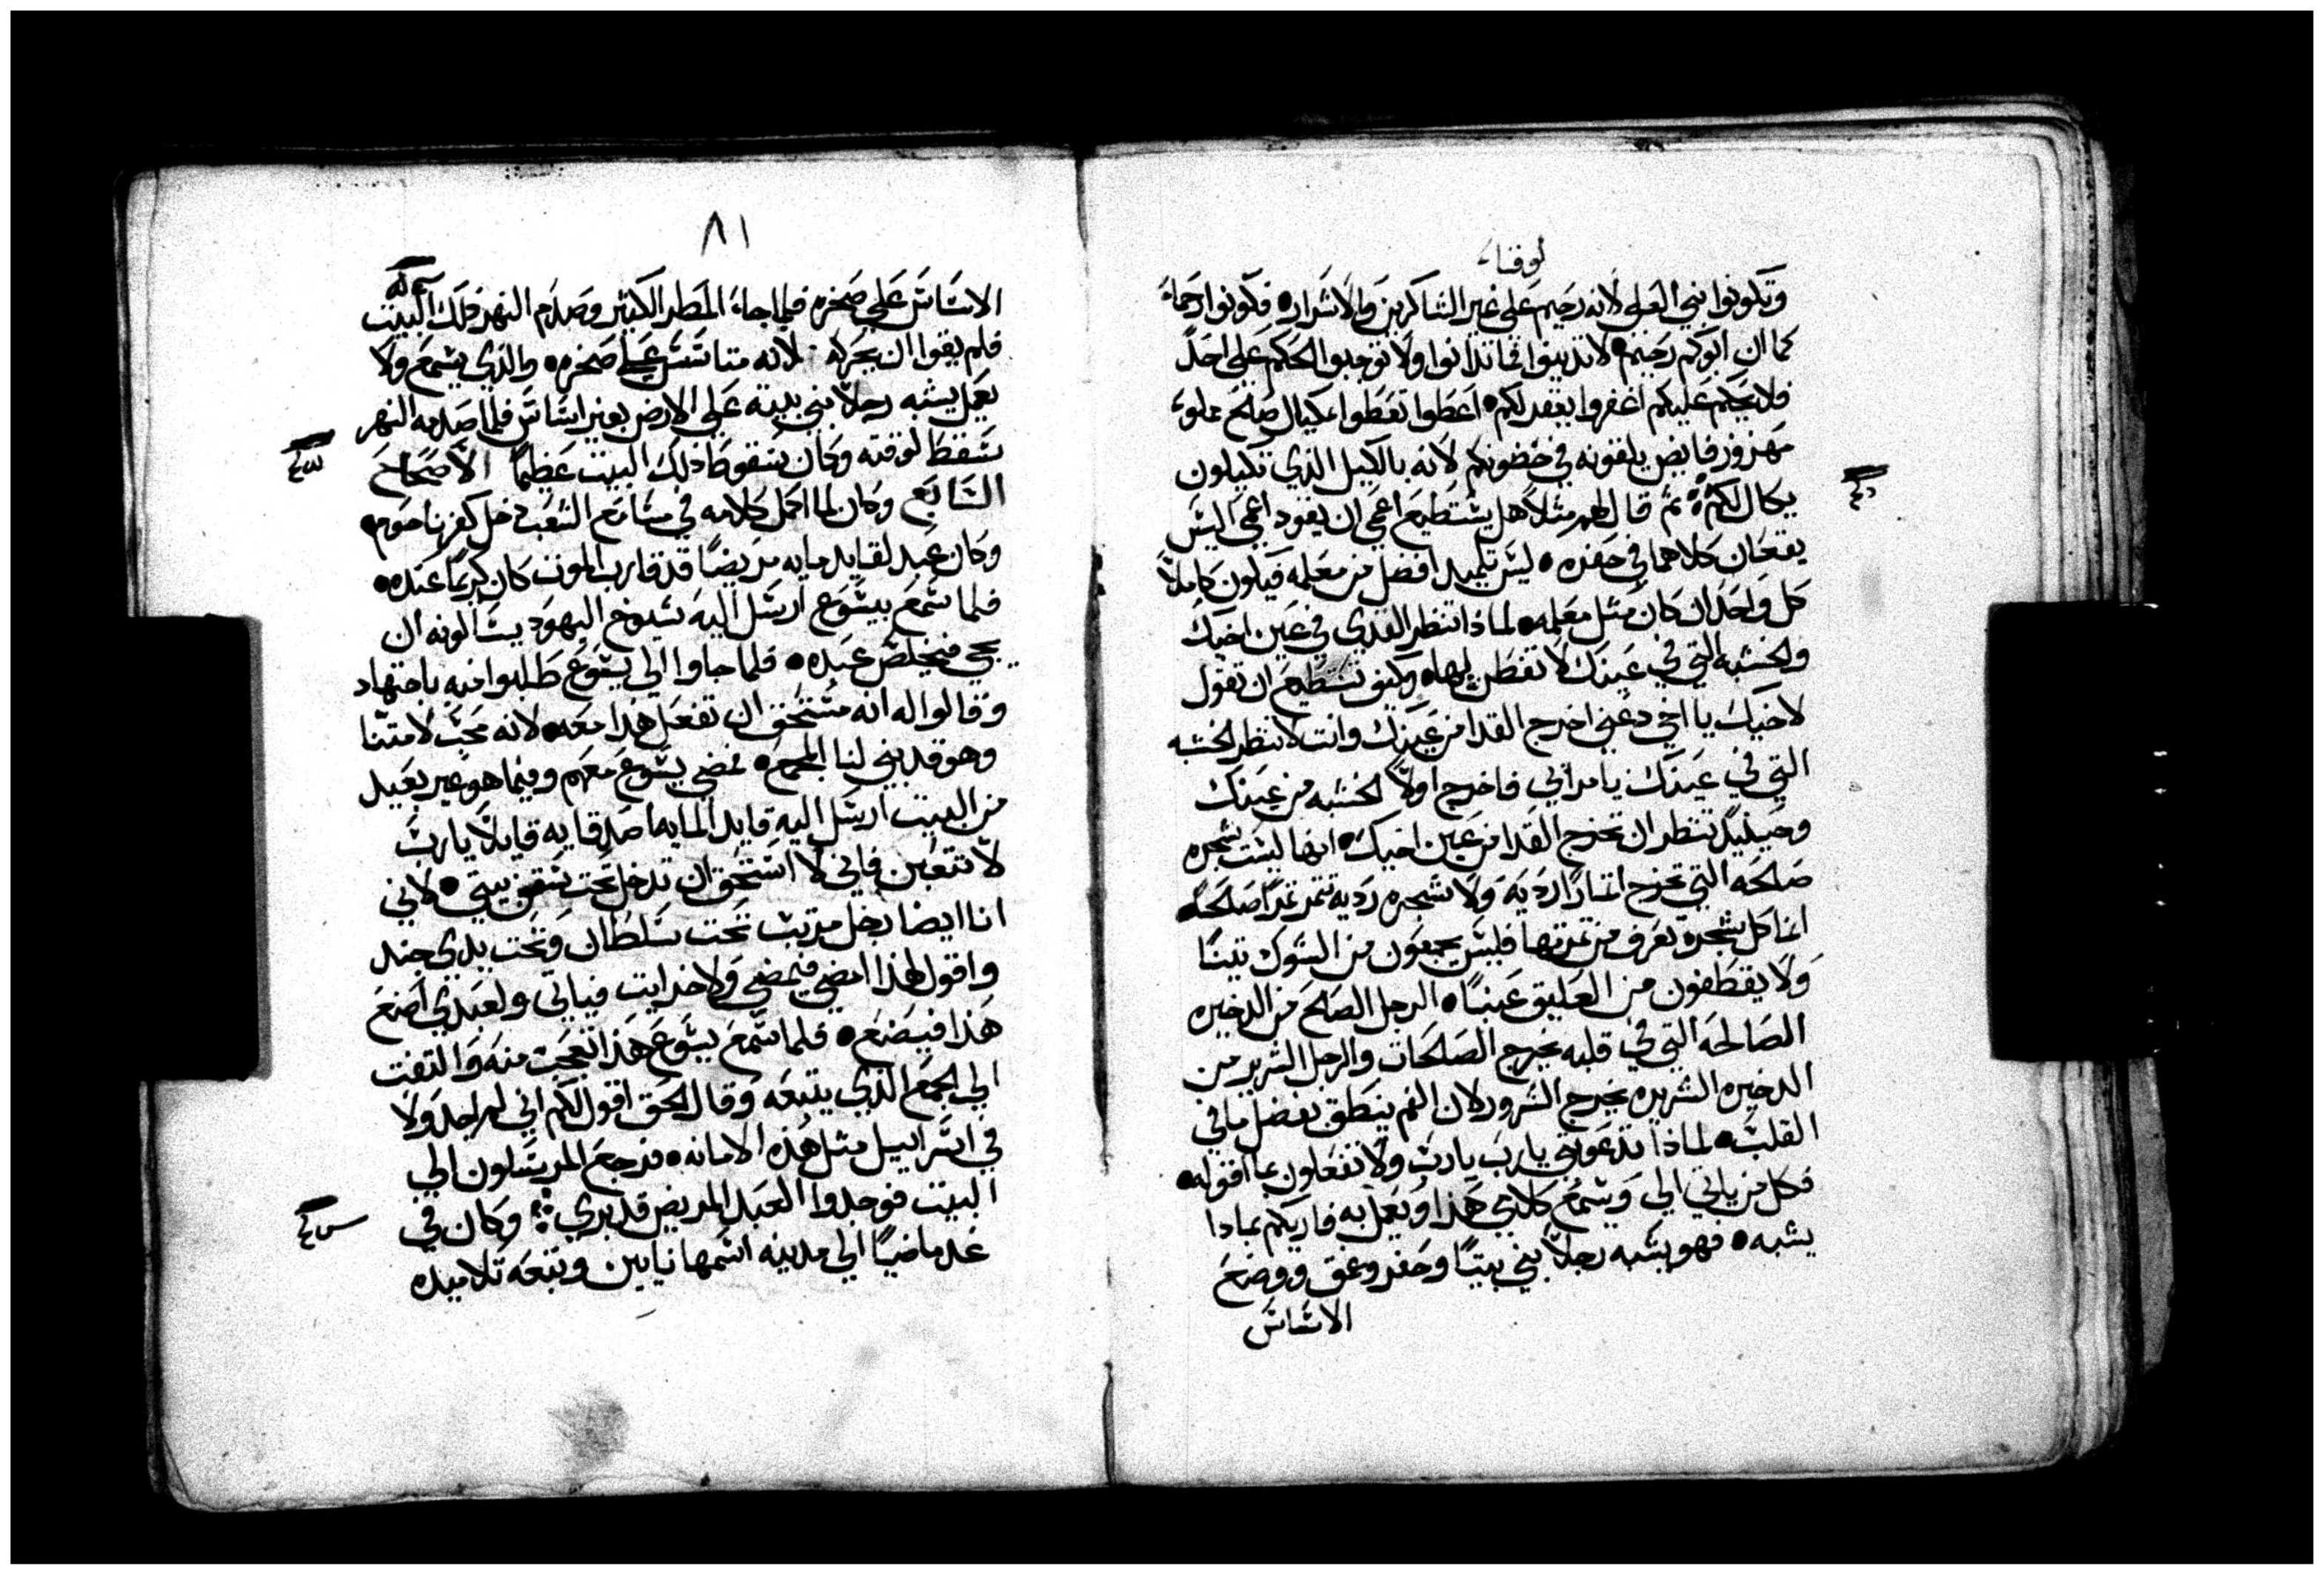 لوقا
وتكونوا بني العلي لانه رحيم علي غير الشاكرين والاشرار• فكونوا رحماء
كما ان ابوكم رحيم• لا تدينوا فما تدانوا ولا توجبوا الحكم علي احدًا
فلا يحكم عليكم اغفروا يغفر لكم• اعطوا تعطوا بمكيال صالح مملوء
مهزوز فايض يلقونه في حضونكم لانه بالكيل الذي تكيلون
يكال لكم ثم قال لهم مثلاً هل يستطيع اعمي ان يقود اعمي اليس
يقعان كلاهما في حفره• ليس تلميد افضل من معلمه فيكون كاملاً
كل واحد ان كان مثل معلمه• لماذا تنظر القدي في عين اخيك
والخشبه التي في عينك لا تفطن لها• وكيف تستطيع ان تقول
لاخيك يا اخي دعني اخرج القدا من عينك وانت لا تنظر الخشبه
التي في عينك يا مرائي فاخرج اولاً الخشبه من عينك
وحينيد تنظر ان تخرج القدا من عين اخيك• انها ليست شجره
صالحه التي تخرج اتمارًا رديه ولا شجره رديه تتمر تمرًا صالحًا•
انما كل شجرة تعرف من تمرتها فليس يجمعون من الشوك تينًا
ولا يقطفون من العليق عنبًا• الرجل الصالح من الدخيره
الصالحه التي في قلبه يخرج الصلحات والرجل الشرير من
الدخيره الشريره يخرج الشرور لان الفم ينطق بفضل ما في
القلب• لماذا تدعوني يارب يارب ولا تفعلون بما اقوله•
فكل من ياتي الي ويسمع كلامي هذا ويعمل به فاريكم بمادا
يشبه• فهو يشبه رجلاً بني بيتًا وحفر وعمق ووضع
الاساس
٨١
الاساس علي صخره فلما جاء المطر الكتير وصدم النهر ذلك البيت
فلم يقوا ان يحركه لانه متاسس علي صخره• والذي يسمع ولا
يعمل يشبه رجلاً بني بيته علي الارض بغير اساس فلما صدمه النهر
سقط لوقته وكان سقوط ذلك البيت عظيمًا الاصحاح
السابع وكان لما اكمل كلامه في مسامع الشعب دخل كفرناحوم•
وكان عبد لقايد مايه مريضًا قد قارب الموت كان كريمًا عنده•
فلما سمع بيشوع ارسل اليه شيوخ اليهود يسالونه ان
يجي فيخلص عبده• فلما جاوا الي يشوع طلبوا منه باجتهاد
وقالوا له انه مستحق ان تفعل هذا معه• لانه محب لامتنا
وهو قد بني لنا المجمع• فمضي يشوع معهم وفيما هو غير بعيد
من البيت ارسل اليه قايد المايه اصدقايه قايلاً يارب
لا تتعبن فاني لا استحق ان تدخل تحت سقف بيتي• لاني
انا ايضا رجل مرتب تحت سلطان وتحت يدي جند
واقول لهذا امضي فيمضي ولاخر ايت فياتي ولعبدي اصنع
هذا فيصنع• فلما سمع يشوع هذا تعجب منه والتفت
الي الجمع الذي يتبعه وقال الحق اقول لكم اني لم اجد ولا
في اسراييل مثل هذه الامانه• فرجع المرسلون الي
البيت فوجدوا العبد المريض قد بري وكان في
غد ماضيًا الي مدينه اسمها نايين وتبعه تلاميده